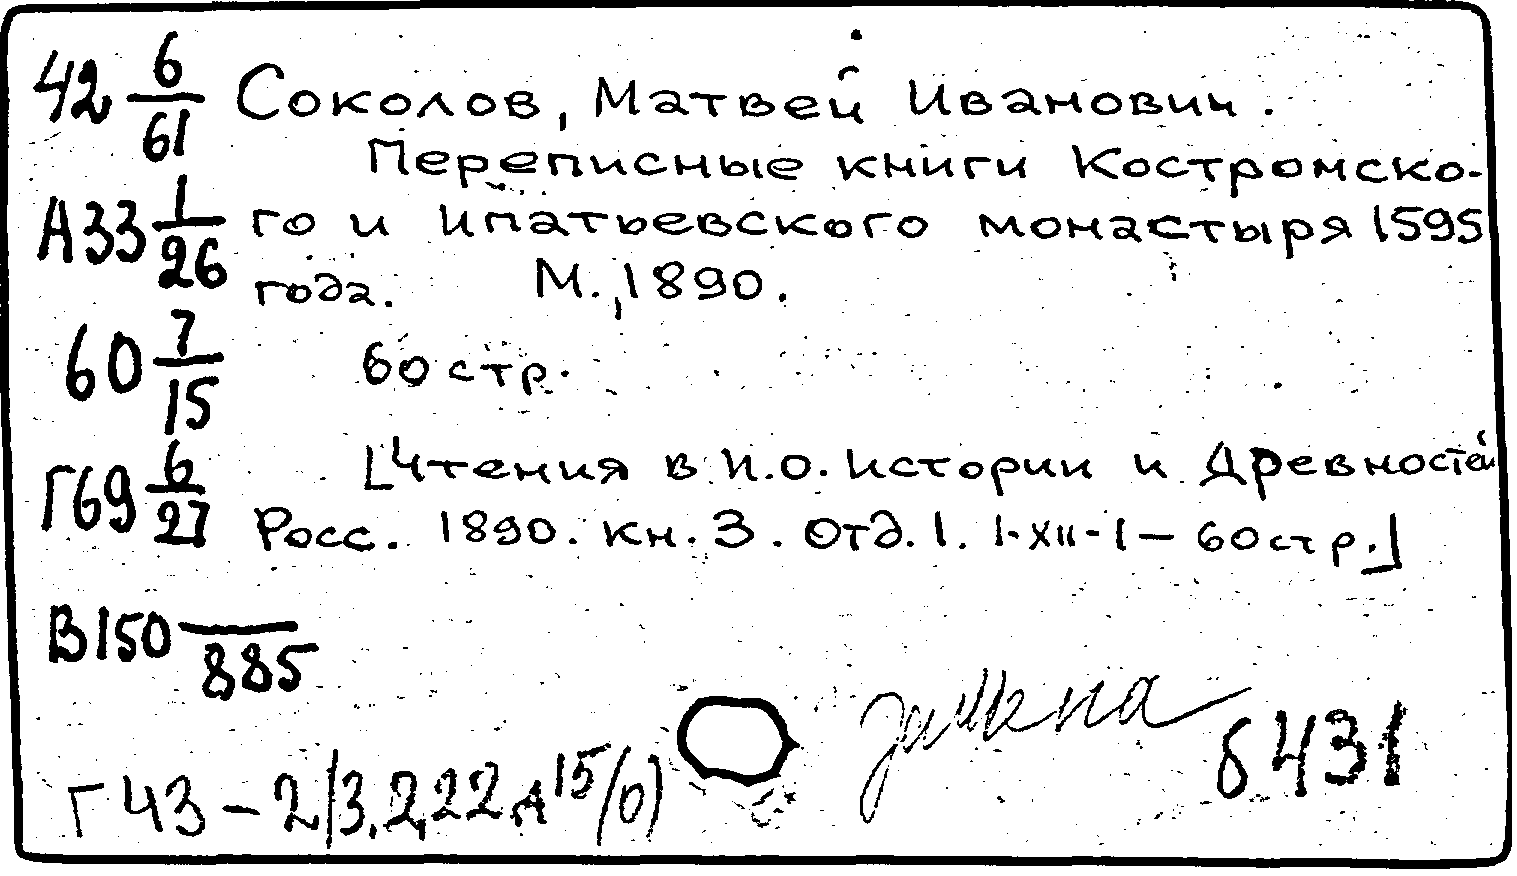 42 6/61 Соколов, Матвей Иванович.
Переписные книги Костромско-
А33 1/26 го и Ипатьевского монастыря 1595
года. М., 1890.
60 7/15 60 стр.
Г69 6/27 [Чтения в И.О. истории и Древностей
Росс. 1890. кн. 3. Отд. I. I-XII-1 — 60 стр.]
В150 /885
замена
6431
Г 43 – 2/3.2,22.А 15/(6)